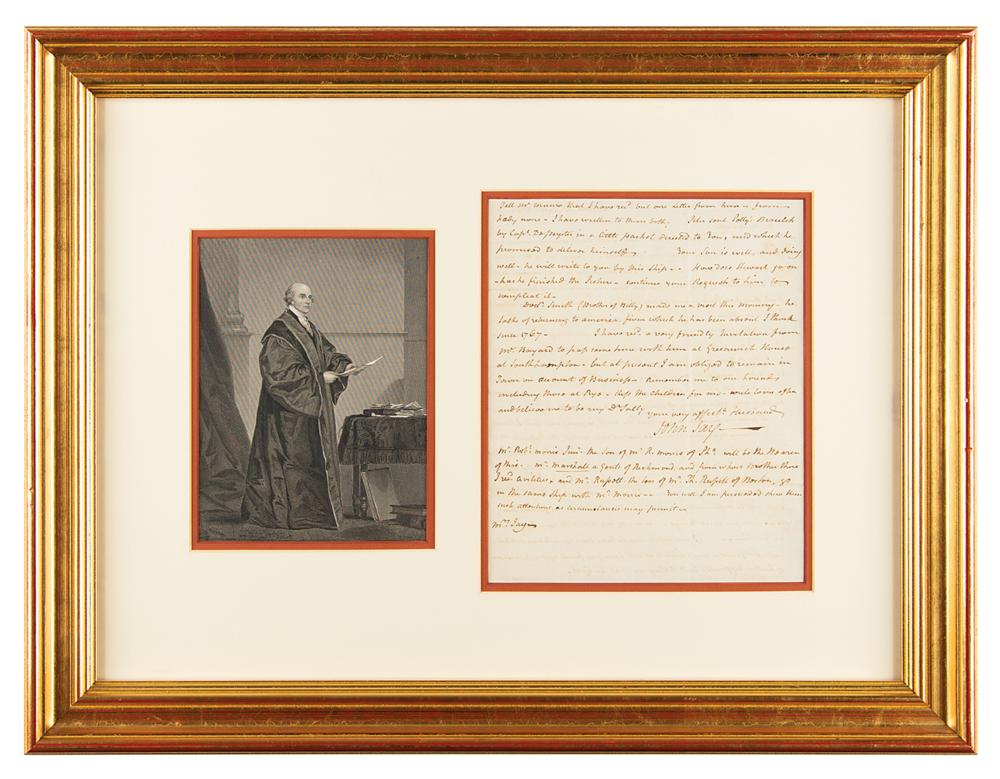 Tell Mr. Munro that I have recd. but one letter from him – from
baby none – I have written to them both. Peter sent Polly's Bracelets
by Capt. in a little packet directed to You, and which he
promised to deliver himself. Your Son is well, and doing
well – he will write to you by this Ship. – How does Stewart go on
– has he finished the Picture – continue your Requests to him to
compleat it –
Doctr. Smith (Brother of Billy) made me a visit this morning – he
talks of returning to america, from which he has been absent I think
since 1767 – I have recd. a very friendly Invitation from
Mr. Bayard to pass some time with him at Greenwich House
at Southhampton – but at present I am obliged to remain in
Town on account of Business – Remember me to our friends
including those at Rye – Kiss the Children for me – write to me often
and believe me to be my Dr. Sally
your very affectte. Husband
John Jay
Mr. Robt. morris Junr. the Son of Mr. R. morris of Pha. will be the Bearer
of this – Mr. Marshall a Gentn. of Richmond, and from whose Brother there
I recd. civilities, and Mr. Russell the son of Mr. Th. Russell of Boston, go
in the same Ship with Mr. Morris – You will I am persuaded shew them
such attentions as circumstances may permit –
Mrs. Jay